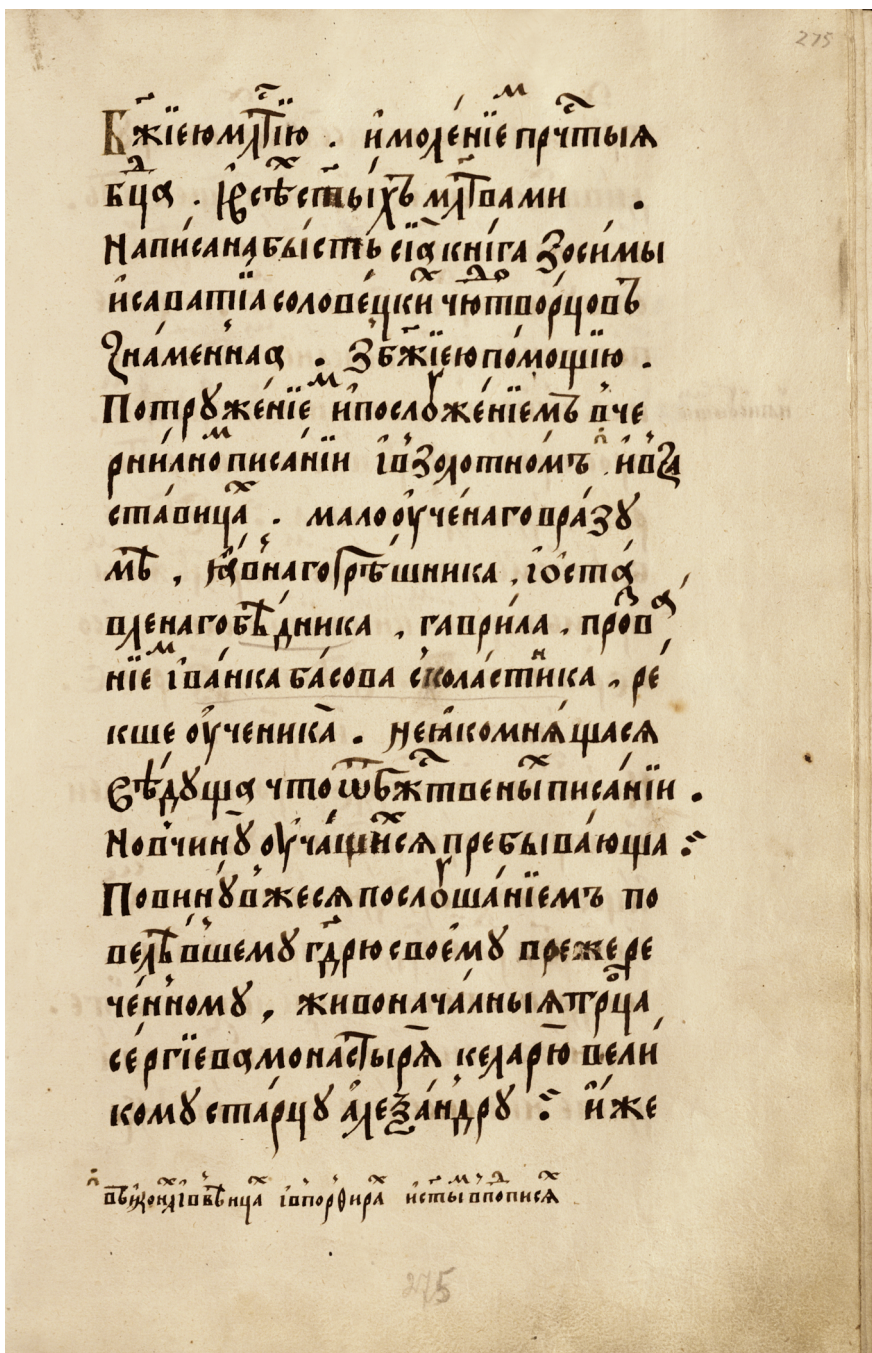 275
Бж҃їею млт҇їю . и҆ моле́нїеⷨ прч҇тыѧ
бцⷣа . и҆ всѣⷯ ст҃ы́хъ млт҃вами .
Написана бы́сть сїѧ кни́га Зоси́мы
и҆ саватїа солове́цкиⷯ чюⷣтво́рцовъ
Зна́меннаа . З бж҃їею по́мощїю .
Потрꙋже́нїеⷨ и҆ послꙋже́нїемъ в че
рни́лноⷨ писа́нїи і҆ в золотно́мъ и҆ в за
ста́вицаⷯ . мало оу҆че́наго в ра́зꙋ
мѣ , ꙗ҆́внаго грѣ́шника , і҆ ѡ҆ста́
вленаго бѣ́дника , гаври́ла , проⷥва
нїеⷨ і҆ва́нка ба́сова схоластиⷩка , ре́
кше оу҆ченика̀ . не ꙗ҆́ко мнѧ́щасѧ
вѣ́дꙋща что̀ ѿ бж҇твеныⷯ писа́нїи .
Но в чинꙋ̀ оу҆ча́щиⷯсѧ пребыва́юща :~
Повинꙋ́в же сѧ послꙋша́нїемъ по
велѣ́вшемꙋ гд҇рю своемꙋ̀ преже ре
че́нномꙋ , живонача́лныѧ трⷪ҇ца
се́ргїева монастырѧ̀ келарю̀ вели́
комꙋ ста́рцꙋ а҆леѯа́ндрꙋ :~ и҆́же
в ы҆ко́наⷯ і҆ в вѣнцаⷯ і҆ в порѳираⷯ
275